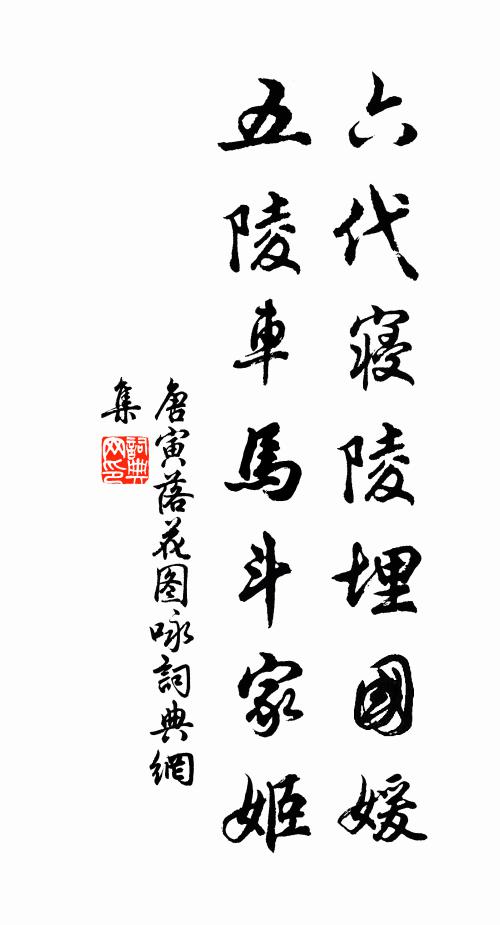 六代寢陵埋國媛
五陵車馬斗家姬
唐寅落花图咏詞典網
集
詞典
网印